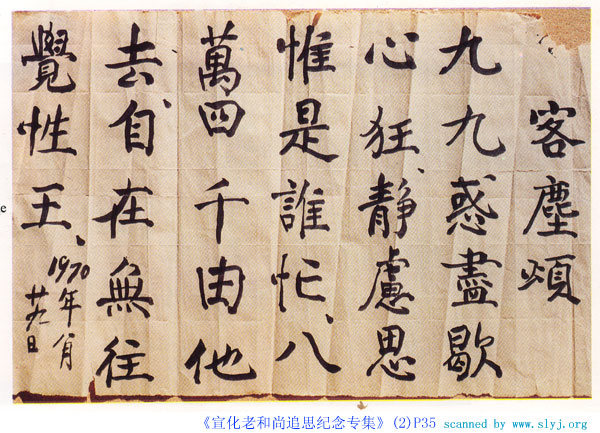 客塵頌
九九惑盡歇
心狂、靜慮思
惟是誰忙、八
萬四千由他
去、自在無往
覺性王、
1970年月
廿九日
e
《宣化老和尚追思纪念专集》(2)P35 scanned by www.slyj.org